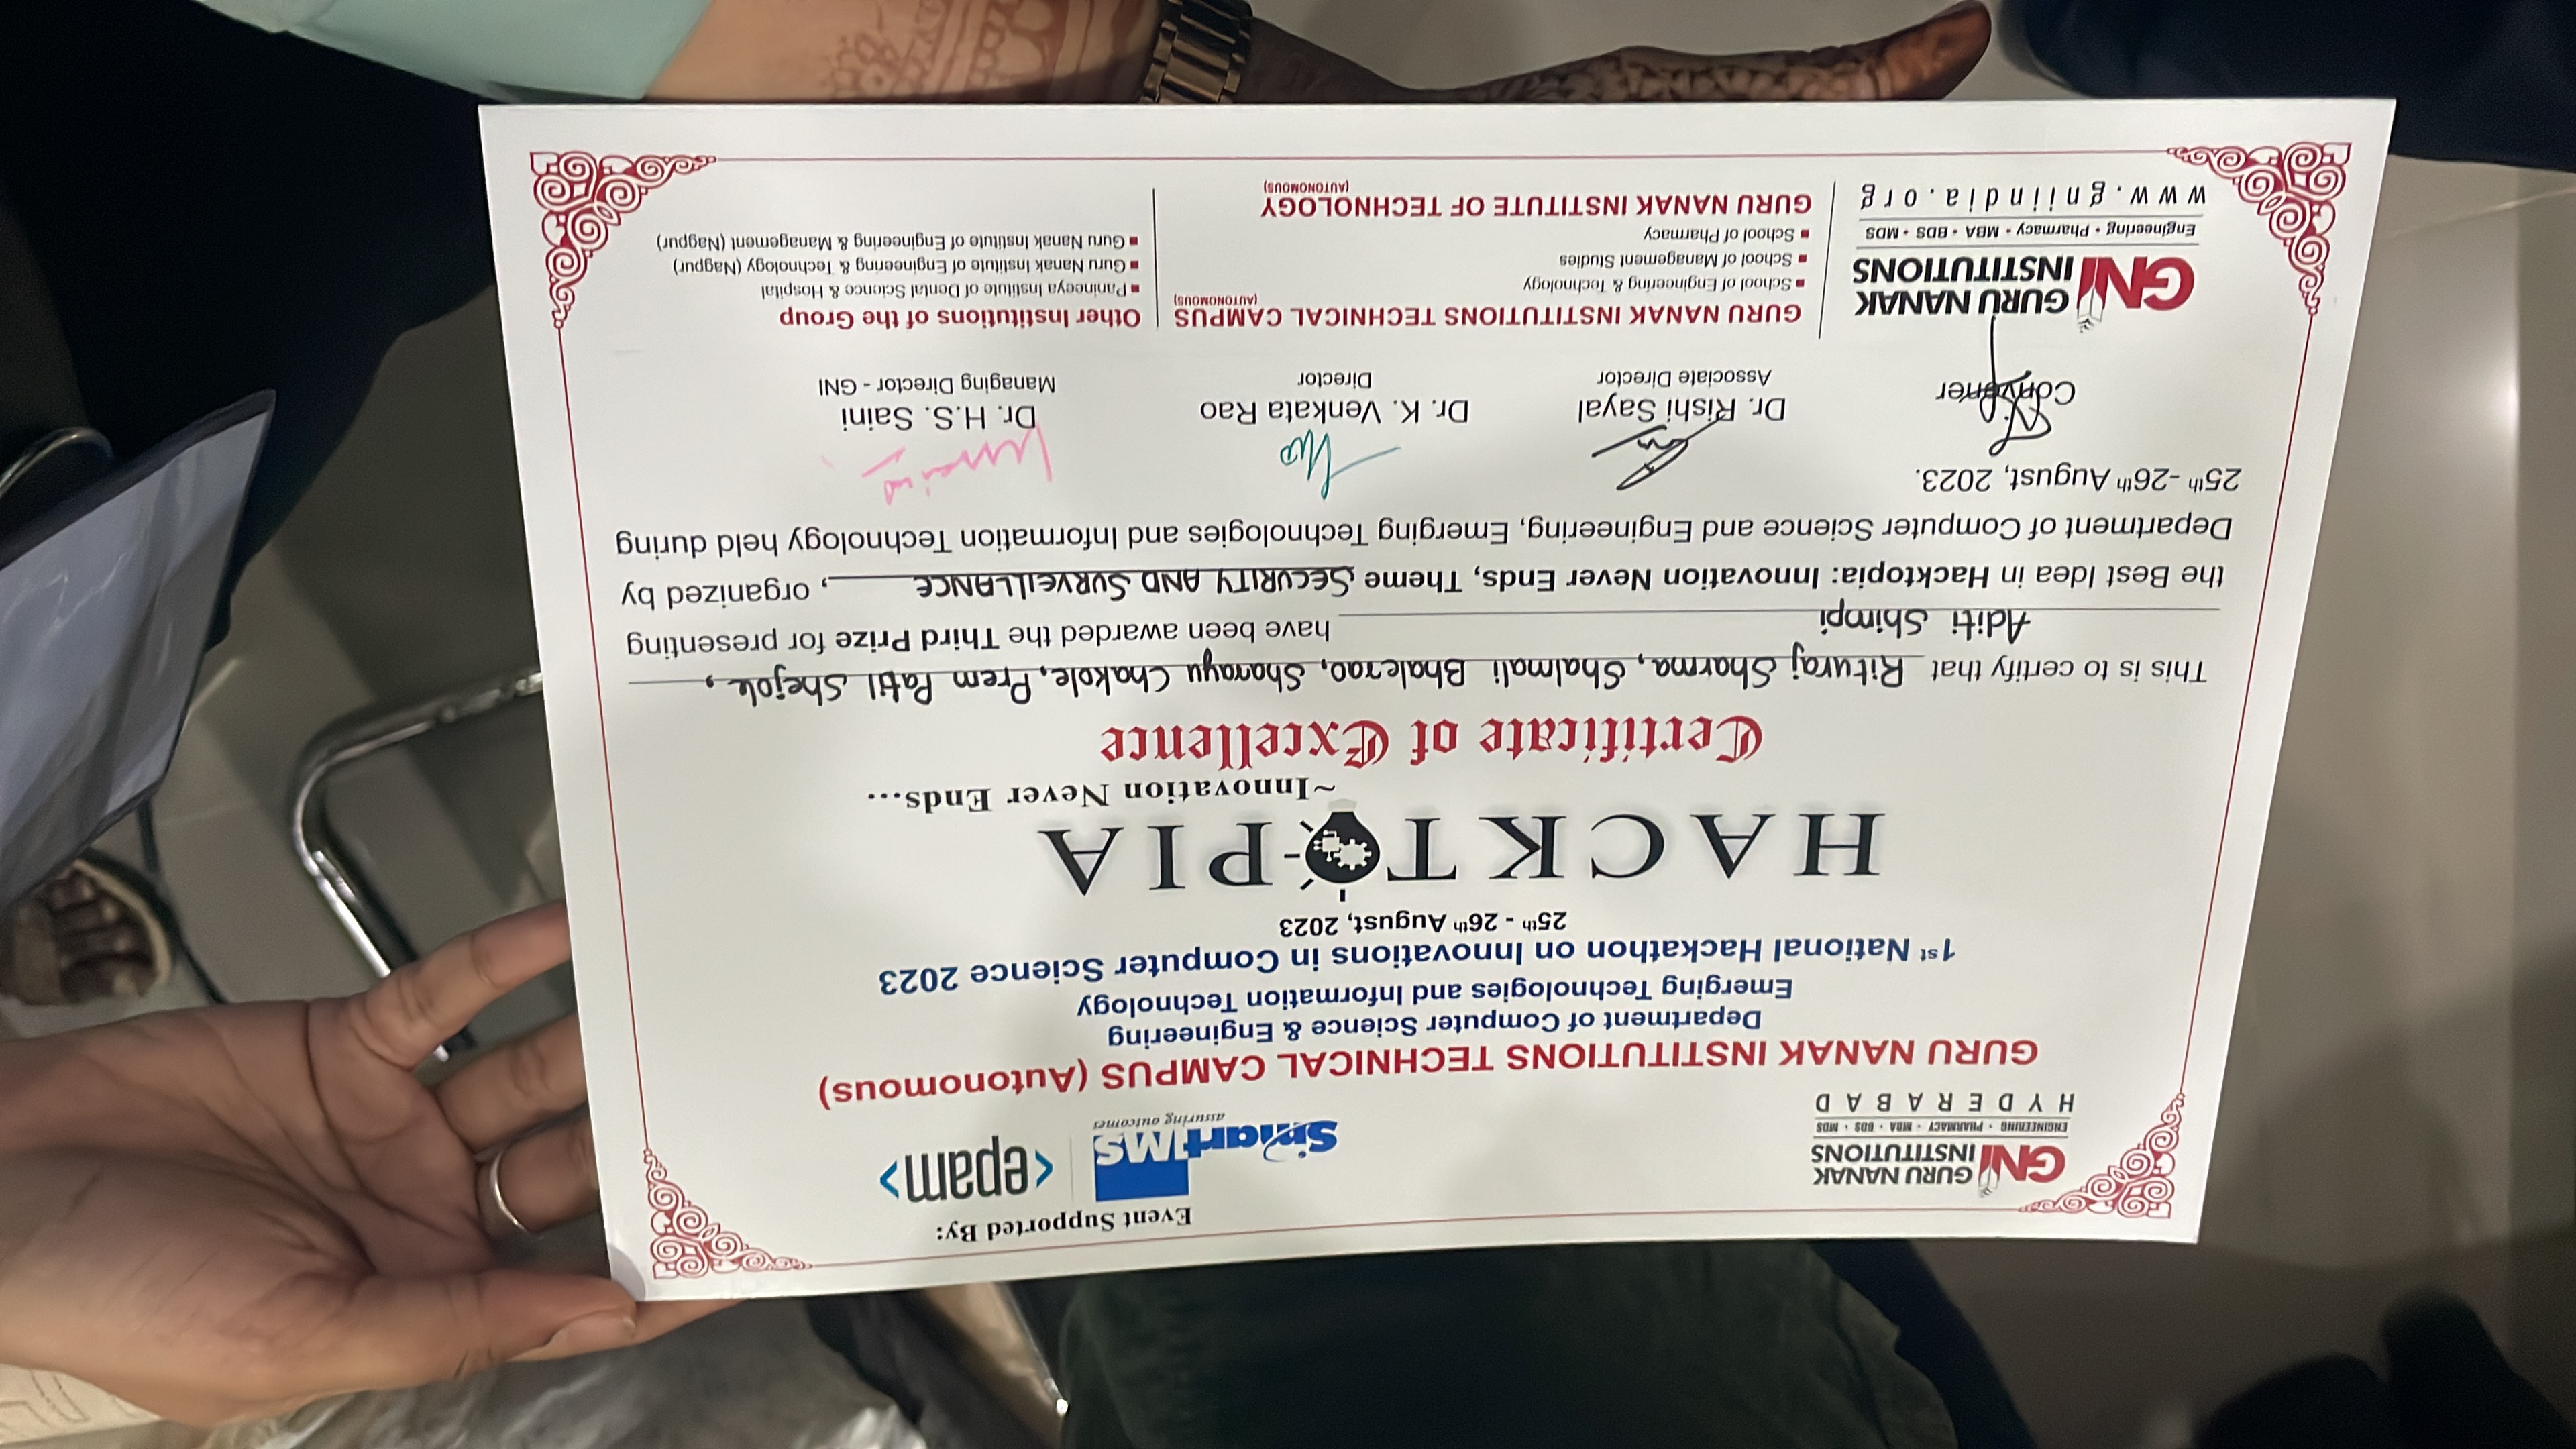 Event Supported By:
GNI GURU NANAK
INSTITUTIONS
ENGINEERING • PHARMACY • MBA • BDS • MDS
HYDERABAD
SmartIMS
assuring outcomes
<epam>
GURU NANAK INSTITUTIONS TECHNICAL CAMPUS (Autonomous)
Department of Computer Science & Engineering
Emerging Technologies and Information Technology
1st National Hackathon on Innovations in Computer Science 2023
25th - 26th August, 2023
HACKTOPIA
~Innovation Never Ends...
Certificate of Excellence
This is to certify that Rituraj Sharma, Shalmali Bhalerao, Sharayu Chakole, Prem Patil Shejole,
Aditi Shimpi have been awarded the Third Prize for presenting
the Best Idea in Hacktopia: Innovation Never Ends, Theme SECURITY AND SURVEILLANCE, organized by
Department of Computer Science and Engineering, Emerging Technologies and Information Technology held during
25th -26th August, 2023.
Convener
Dr. Rishi Sayal
Associate Director
Dr. K. Venkata Rao
Director
Dr. H.S. Saini
Managing Director - GNI
GNI GURU NANAK
INSTITUTIONS
Engineering • Pharmacy • MBA • BDS • MDS
www.gniindia.org
GURU NANAK INSTITUTIONS TECHNICAL CAMPUS
(AUTONOMOUS)
School of Engineering & Technology
School of Management Studies
School of Pharmacy
GURU NANAK INSTITUTE OF TECHNOLOGY
(AUTONOMOUS)
Other Institutions of the Group
Panineeya Institute of Dental Science & Hospital
Guru Nanak Institute of Engineering & Technology (Nagpur)
Guru Nanak Institute of Engineering & Management (Nagpur)